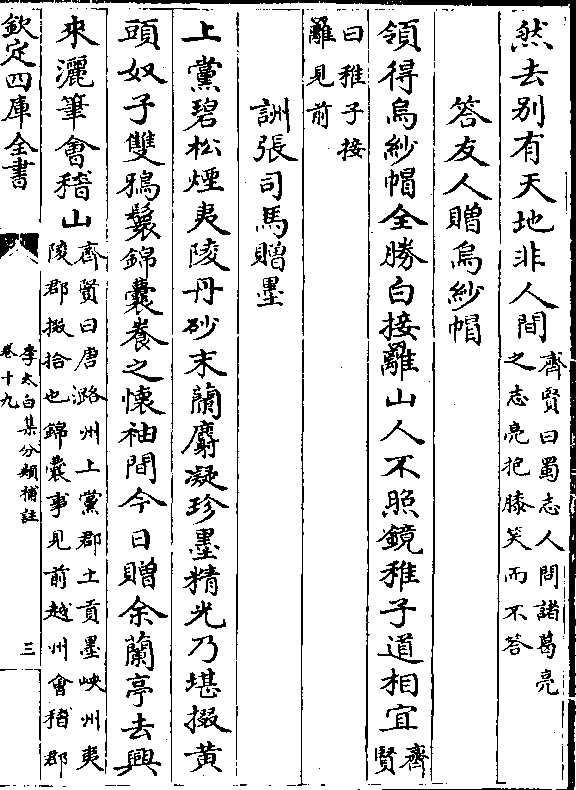 然去别有天地非人間
齊賢曰蜀志人問諸葛亮
之志亮抱膝笑而不答
答友人贈烏紗帽
領得烏紗帽全勝白接䍦山人不照鏡稚子道相宜
齊
賢
曰稚子接
䍦見前
詶張司馬贈墨
上黨碧松煙夷陵丹砂末蘭麝凝珍墨精光乃堪掇黄
頭奴子雙鴉鬟錦囊養之懷袖間今日贈余蘭亭去興
來灑筆會稽山
齊賢曰唐潞州上黨郡土貢墨峽州夷
陵郡掇拾也錦囊事見前越州會稽郡
欽定四庫全書
李太白集分類補註
卷十九
三